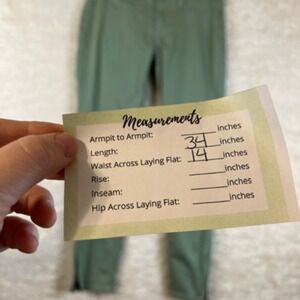 Measurements
Armpit to Armpit: ______inches
Length: 34 inches
Waist Across Laying Flat: 14 inches
Rise: ______inches
Inseam: ______inches
Hip Across Laying Flat: ______inches